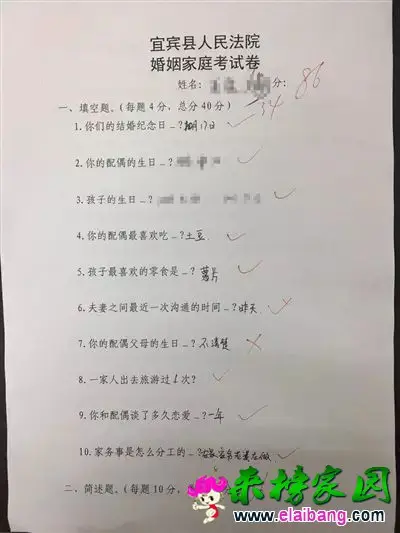 宜宾县人民法院
婚姻家庭考试卷
姓名: 分: 86
34
一、填空题、(每题4分，总分40分)
1.你们的结婚纪念日_? 月17日
2.你的配偶的生日_?
3.孩子的生日_?
4.你的配偶最喜欢吃_?土豆
5.孩子最喜欢的零食是_? 薯片
6.夫妻之间最近一次沟通的时间_?昨天
7.你的配偶父母的生日_? 不清楚
8.一家人出去旅游过 次?
9.你和配偶谈了多久恋爱_?一年
10.家务事是怎么分工的_?
二、简述题、(每题10分，总
来榜家园
www.elaibang.com